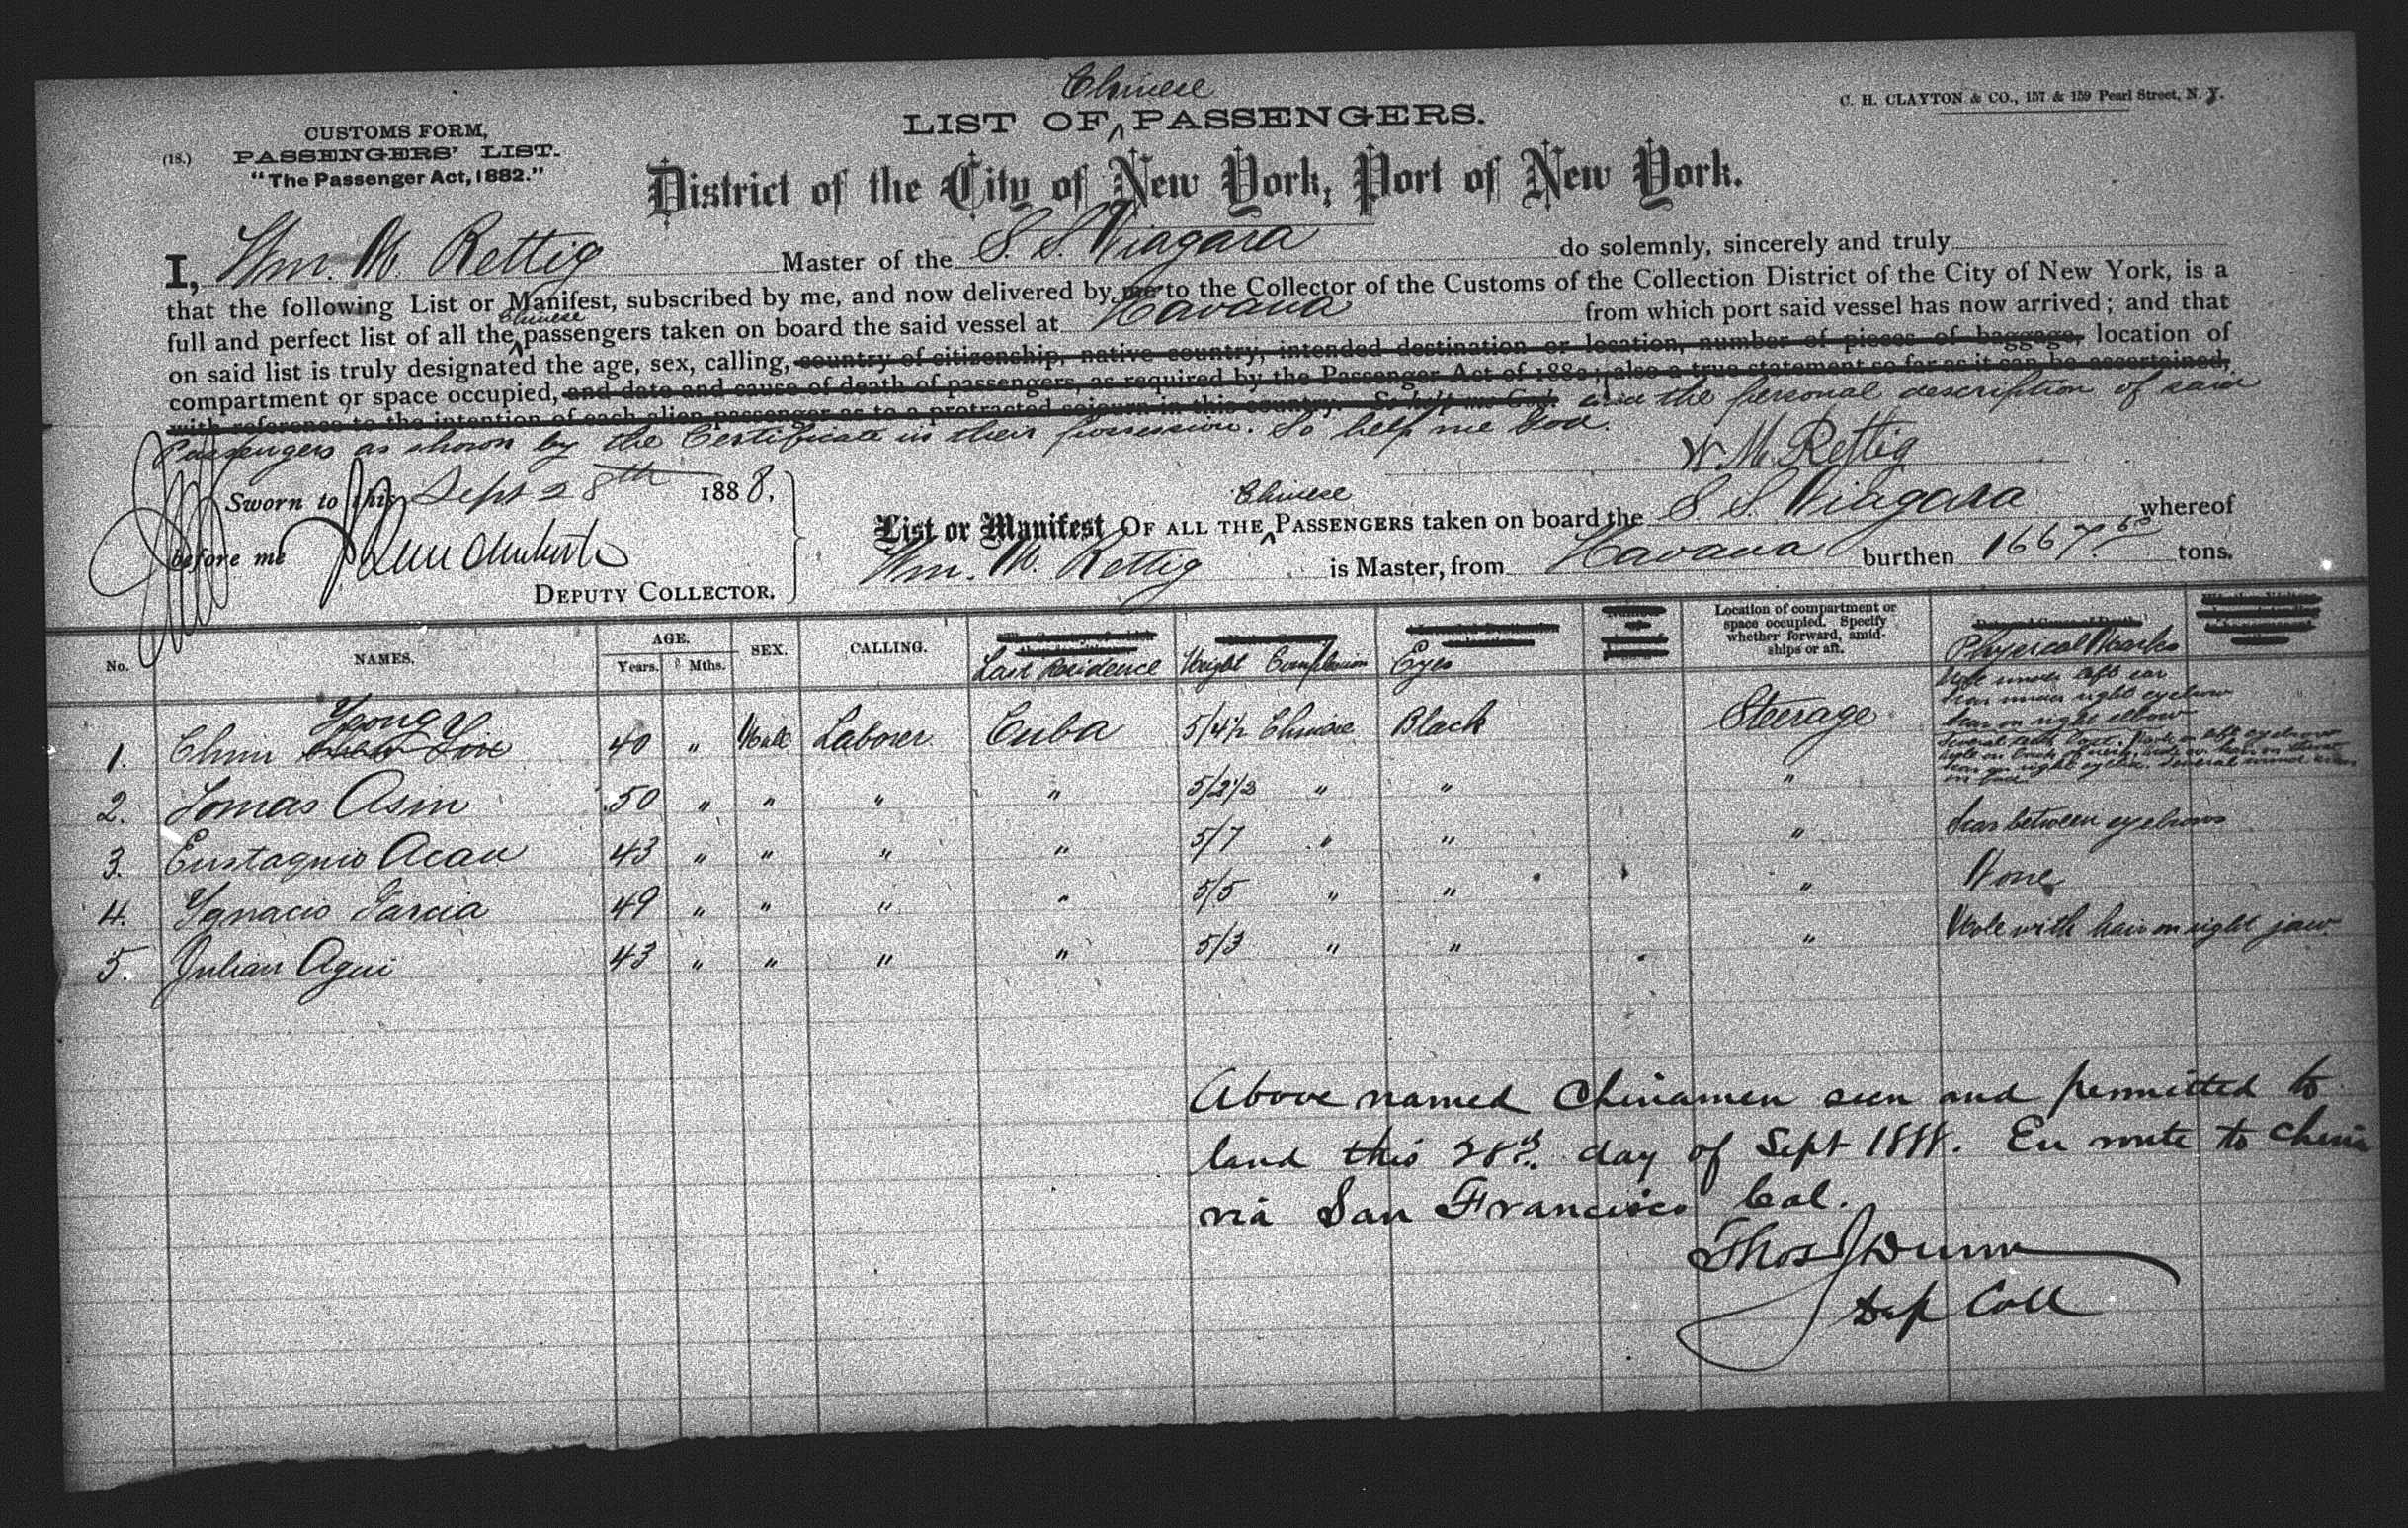 Chinese
LIST OF ^ PASSENGERS.
C. H. CLAYTON & CO., 157 & 159 Pearl Street, N. Y.
(18.)
CUSTOMS FORM,
PASSENGERS' LIST.
"The Passenger Act, 1882."
District of the City of New York, Port of New York.
I, Wm. M. Rettig Master of the S. S. Niagara do solemnly, sincerely and truly
that the following List or Manifest, subscribed by me, and now delivered by me to the Collector of the Customs of the Collection District of the City of New York, is a
full and perfect list of all the ^ Chinese passengers taken on board the said vessel at Havana from which port said vessel has now arrived; and that
on said list is truly designated the age, sex, calling, country of citizenship, native country, intended destination or location, number of pieces of baggage, location of
compartment or space occupied, and date and cause of death of passengers, as required by the Passenger Act of 1882; also a true statement so far as it can be ascertained,
with reference to the intention of each alien passenger as to a protracted sojourn in this country. So help me God. and the personal description of said
Passengers as shown by the Certificate in their possession. So help me God.
W M Rettig
Sworn to this Sept 28th 1888.
before me
DEPUTY COLLECTOR.
Chinese
List or Manifest OF ALL THE ^ PASSENGERS taken on board the S. S. Niagara whereof
Wm. M. Rettig is Master, from Havana burthen 1667.50 tons.
No. NAMES. AGE. Years. Mths. SEX. CALLING. Last Residence Height Complexion Eyes Location of compartment or space occupied. Specify whether forward, amidships or aft. Physical Marks
1. Chun Yeong Yive 40 " Male Laborer Cuba 5/4½ Chinese Black Steerage Mole under left ear
Scar under right eyebrow
Scar on right elbow
2. Tomas Asin 50 " " " " 5/2½ " " "
3. Eustaquio Acau 43 " " " " 5/7 " " " Scar between eyebrows
4. Ygnacio Garcia 49 " " " " 5/5 " " " None
5. Julian Agui 43 " " " " 5/3 " " " Mole with hair on right jaw
Above named Chinamen seen and permitted to
land this 28th day of Sept 1888. En route to China
via San Francisco Cal.
Thos J Dunn
Dep Coll